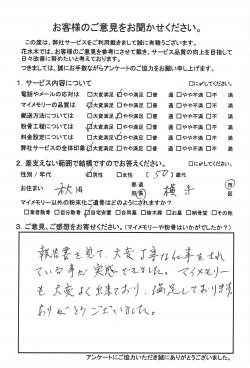 お客様のご意見をお聞かせください。
この度は、弊社サービスをご利用戴きまして誠に有難うございます。
花水木では、お客様のご意見を参考にさせて戴き、サービス品質の向上を目指して
日々改善に努めたいと考えております。
つきましては、誠にお手数ながらアンケートのご協力をお願い申し上げます。
1. サービス内容について □に✓してください。
電話やメールの応対は □大変満足 □満足 □普通 □やや不満 □不満
マイメモリーの品質は □大変満足 □満足 □普通 □やや不満 □不満
郵送方法については □大変満足 □満足 □普通 □やや不満 □不満
粉骨工程については □大変満足 □満足 □普通 □やや不満 □不満
粉骨加工については □大変満足 □満足 □普通 □やや不満 □不満
弊社サービスの全体印象 □大変満足 □満足 □普通 □やや不満 □不満
2. 差支えない範囲で結構ですのでお答えください。 □に✓してください。
性別/年代 □男性 □女性 (50)歳代
お住まい 秋田 都道府県 横手 市区
マイメモリー以外の粉末化ご遺骨はどのようにされますか?
□業者散骨 □自分散骨 □自宅安置 □合同墓 □樹木葬 □お墓 □納骨堂 □その他
3. ご意見、ご感想をお寄せください。(マイメモリーや粉骨はいかがでしたか?)
報告書を見て、大変丁寧な仕事をされ
ている事が実感できました。マイメモリー
も大変よく出来ており、満足しております。
ありがとうございました。
アンケートにご協力いただき誠にありがとうございました。